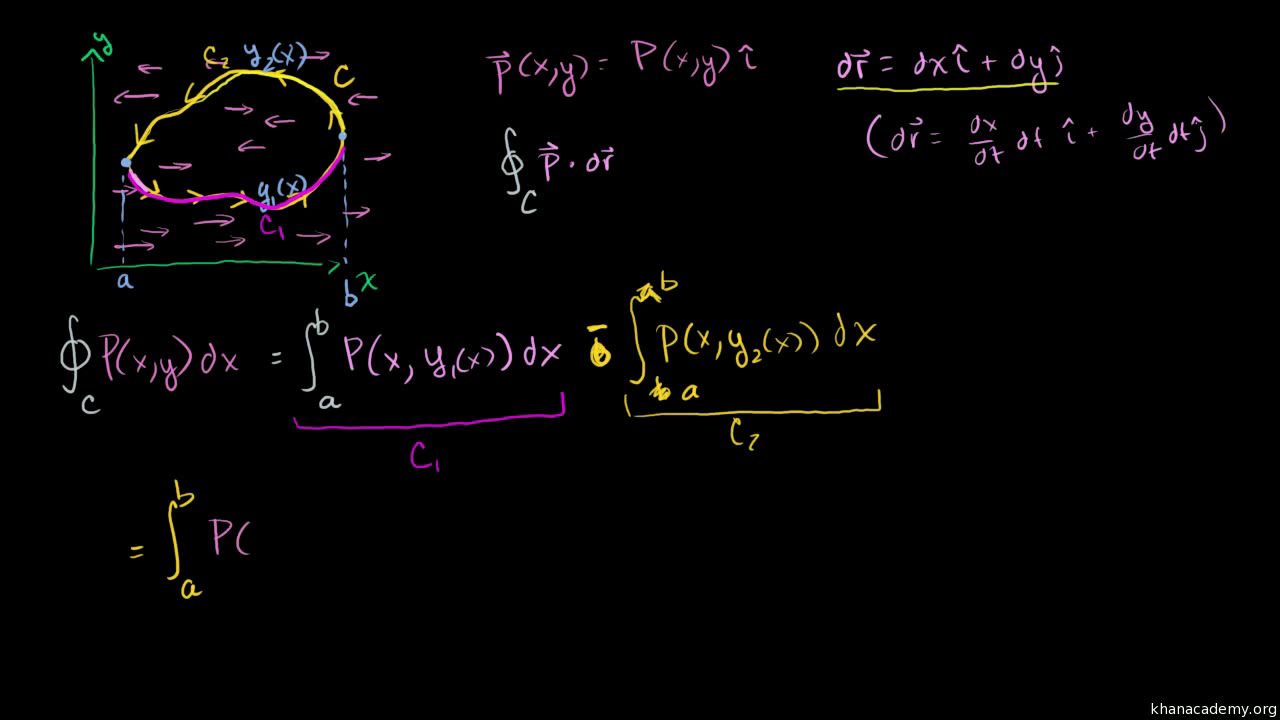 y
C₂ y₂(x)
C
y₁(x)
C₁
a
b x
P⃗(x,y) = P(x,y) î
dr⃗ = dx î + dy ĵ
(dr⃗ = dx/dt dt î + dy/dt dt ĵ)
∮_C P⃗ · dr⃗
∮_C P(x,y) dx = ∫_a^b P(x, y₁(x)) dx - ∫_a^b P(x, y₂(x)) dx
C₁
C₂
= ∫_a^b P(
khanacademy.org